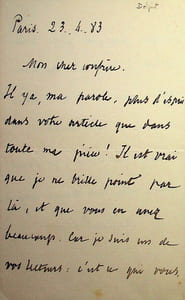 Dépôt
Paris. 23. 4. 83
Mon cher confrère.
Il y a, ma parole, plus d'esprit
dans votre article que dans
toute ma pièce ! Il est vrai
que je ne brille point par
là, et que vous en avez
beaucoup. Car je suis un de
vos lecteurs : c'est ce qui vous